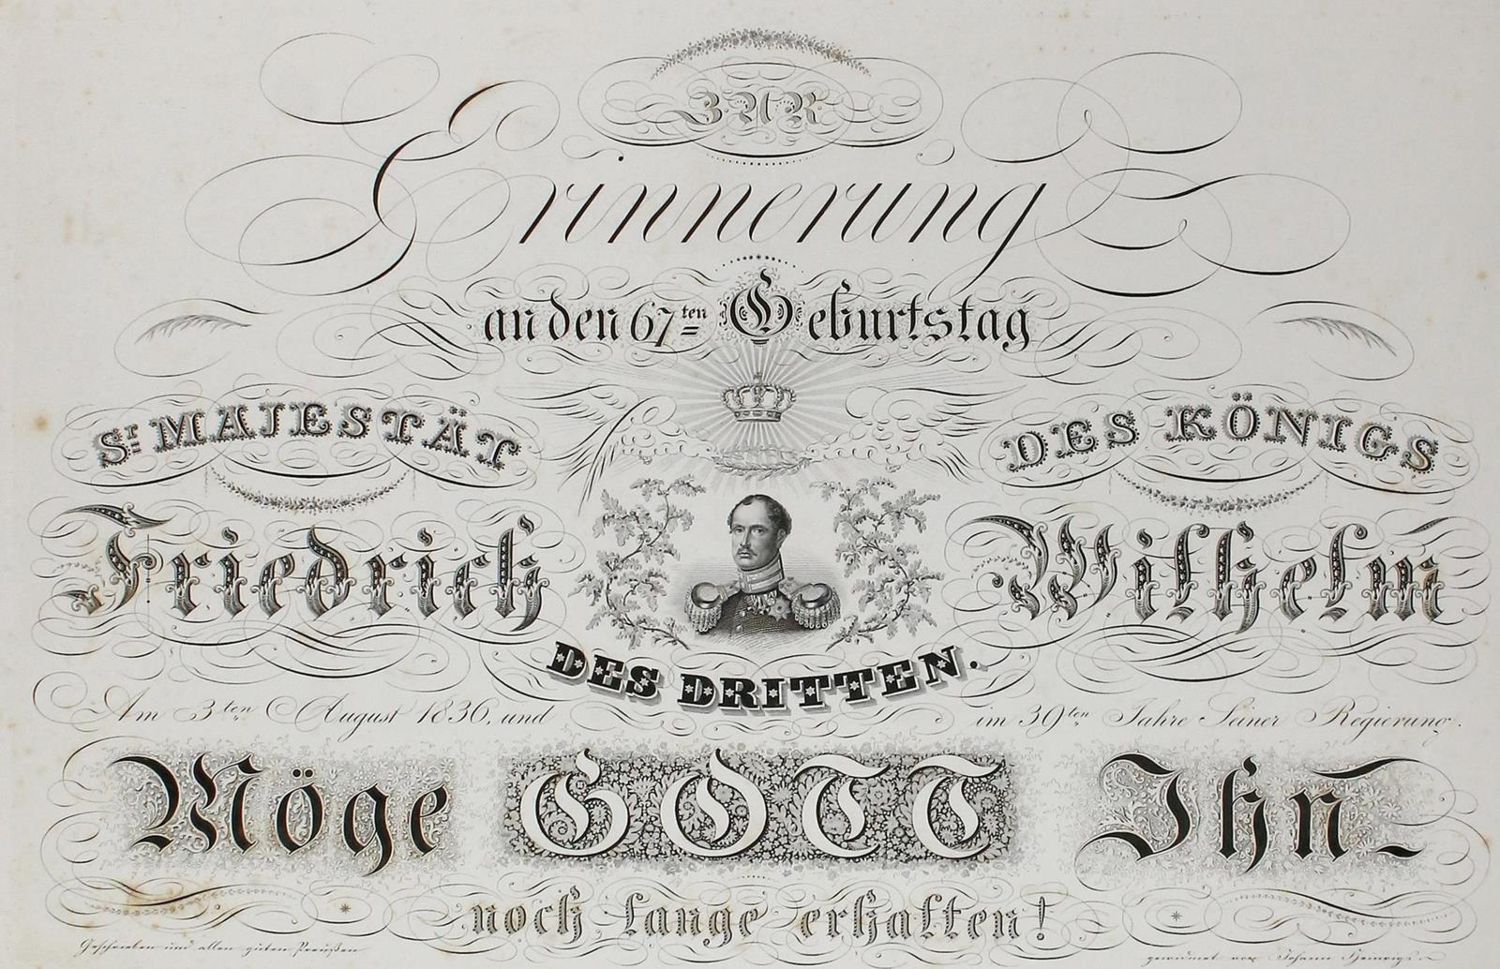 ZUR
Erinnerung
an den 67ten Geburtstag
Sr. MAJESTÄT DES KÖNIGS
Friedrich Wilhelm
DES DRITTEN.
Am 3ten August 1836, und im 39ten Jahre Seiner Regierung.
Möge GOTT Ihn
noch lange erhalten!
Geschrieben und allen guten Preußen gewidmet von Johann Heinrigs